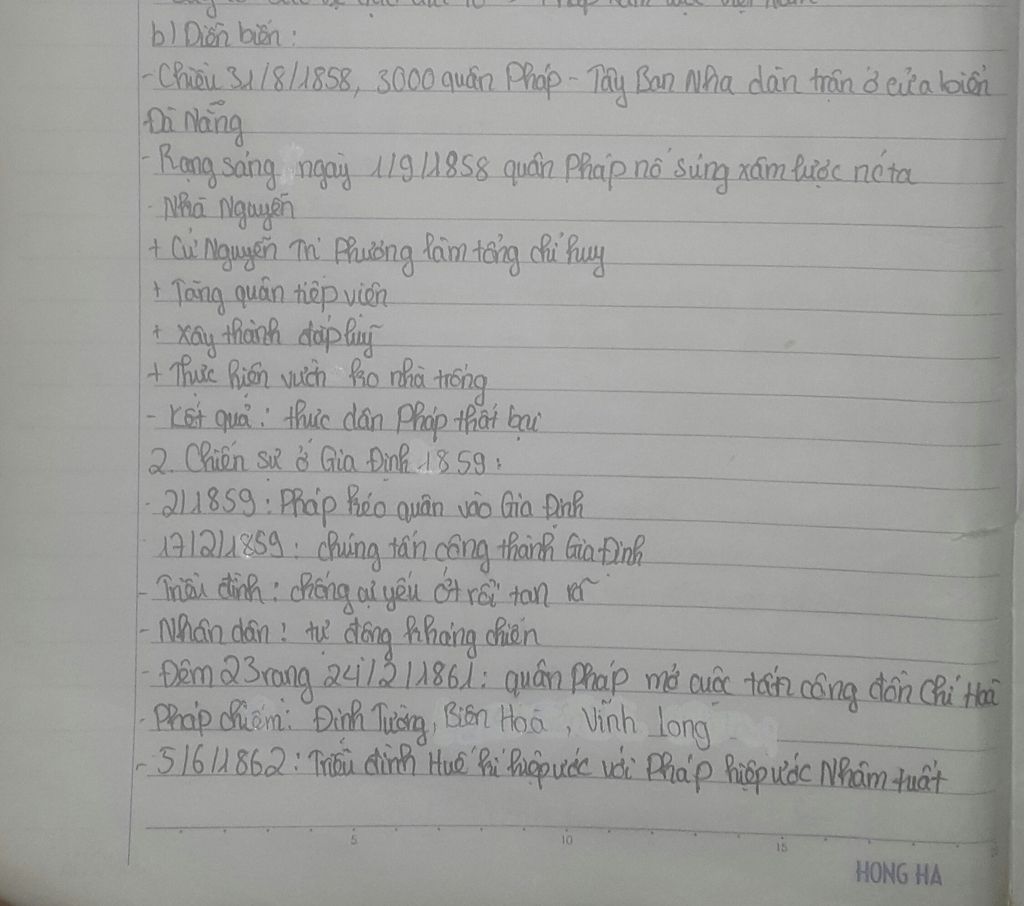 Pháp xâm lược Việt Nam
b) Diễn biến:
- Chiều 31/8/1858, 3000 quân Pháp - Tây Ban Nha dàn trận ở cửa biển
Đà Nẵng
- Rạng sáng ngày 1/9/1858 quân Pháp nổ súng xâm lược nc ta
- Nhà Nguyễn
+ Cử Nguyễn Tri Phương làm tổng chỉ huy
+ Tăng quân tiếp viện
+ Xây thành đắp luỹ
+ Thực hiện vườn ko nhà trống
- Kết quả: thực dân Pháp thất bại
2. Chiến sự ở Gia Định 1859:
- 2/1859: Pháp kéo quân vào Gia Định
17/2/1859: chúng tấn công thành Gia Định
- Triều đình: chống cự yếu ớt rồi tan rã
- Nhân dân: tự động kháng chiến
- Đêm 23 rạng 24/2/1861: quân Pháp mở cuộc tấn công đồn Chí Hoà
- Pháp chiếm: Định Tường, Biên Hoà, Vĩnh Long
- 5/6/1862: Triều đình Huế kí hiệp ước với Pháp hiệp ước Nhâm tuất
5 10 15
HONG HA